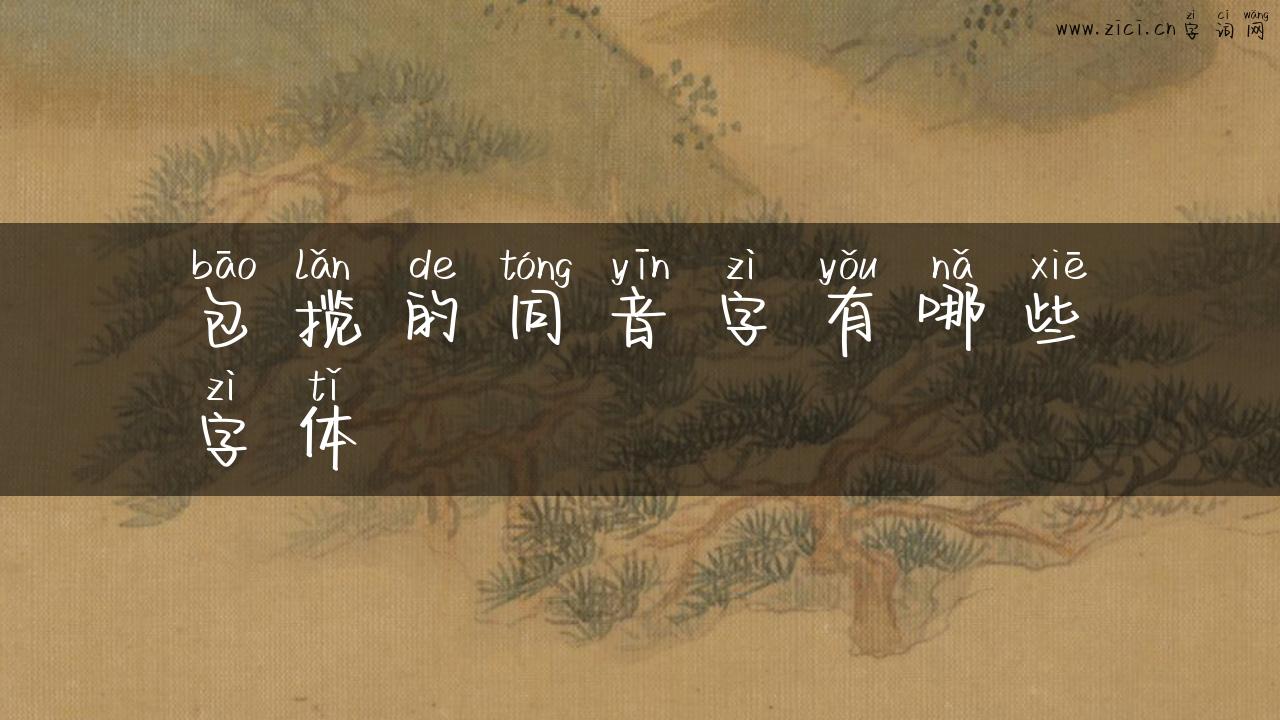 zì cí wǎng
www.zīcī.cn 字 词 网
bāo lǎn de tóng yīn zì yǒu nǎ xiē
包 揽 的 同 音 字 有 哪 些
zì tǐ
字 体